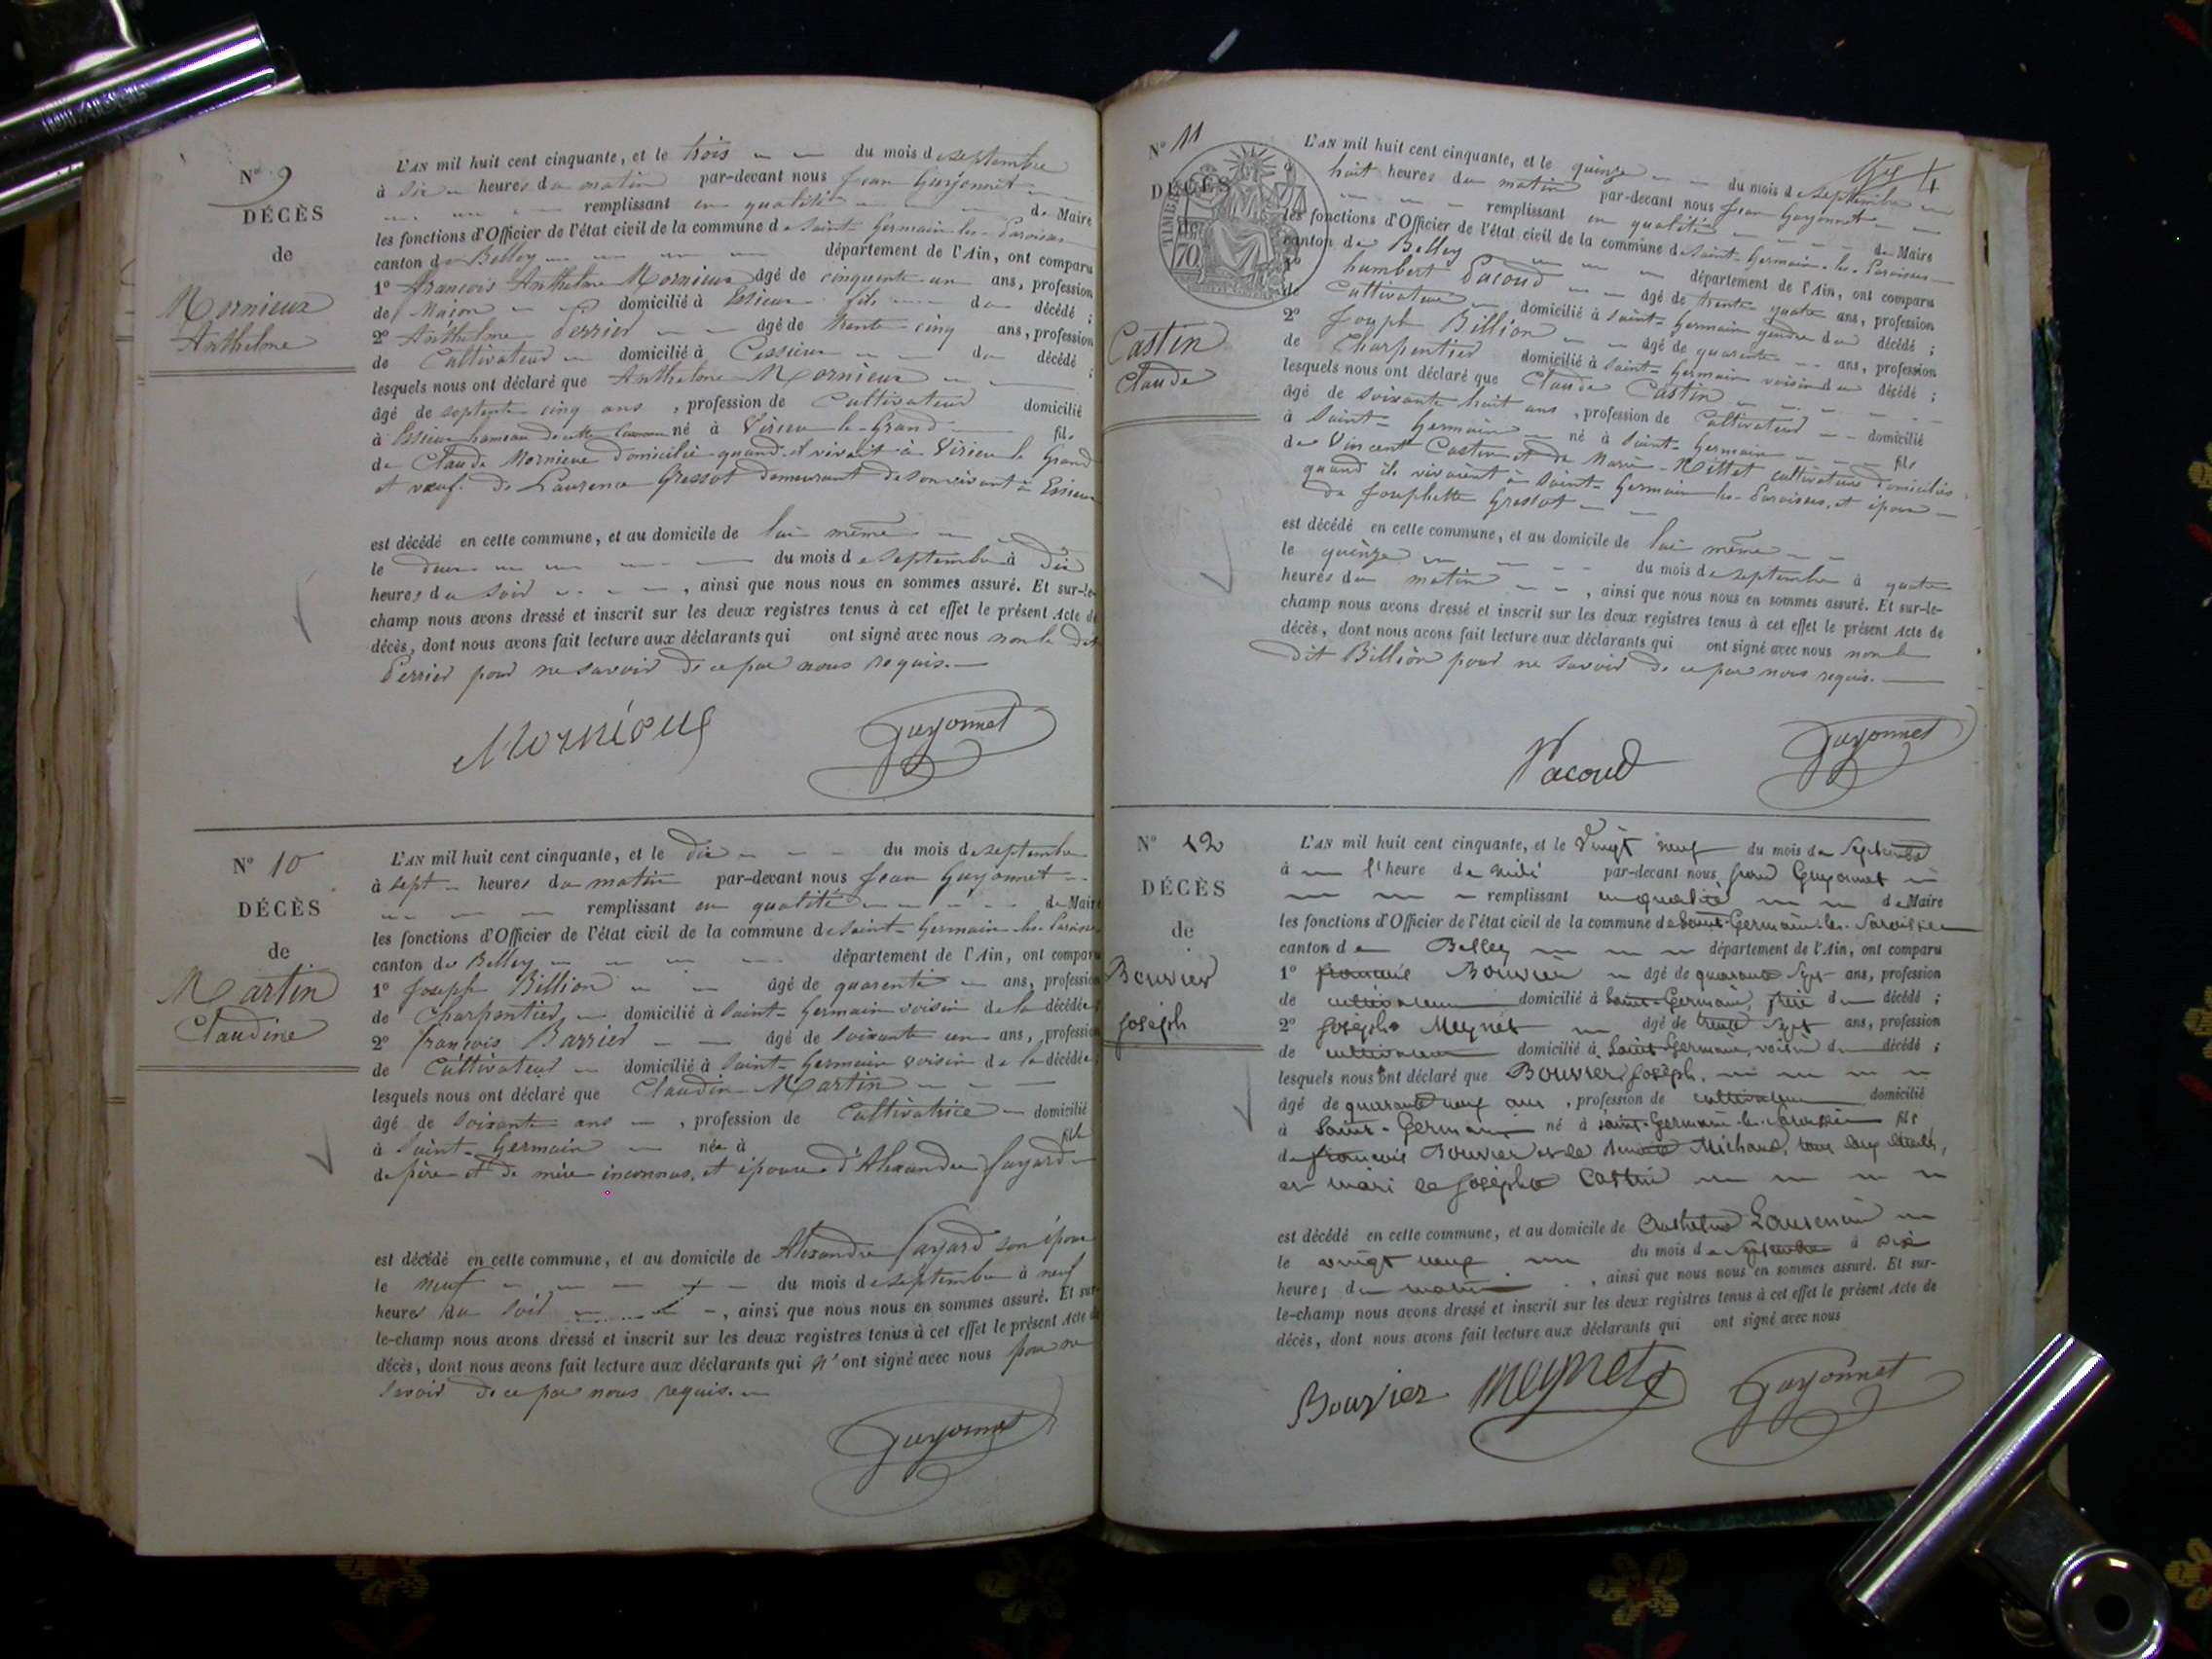 N° 9
DÉCÈS
de
Mornieux
Anthelme
L'AN mil huit cent cinquante, et le trois du mois de septembre
à six heures du matin par-devant nous Jean Guyonnet
remplissant en qualité de Maire
les fonctions d'Officier de l'état civil de la commune de Saint-Germain-les-Paroisses
canton de Belley département de l'Ain, ont comparu
1° françois Anthelme Mornieux âgé de cinquante-un ans, profession
de Maçon domicilié à Essieux fils du décédé ;
2° Anthelme Perrier âgé de trente-cinq ans, profession
de Cultivateur domicilié à Cessieux du décédé ;
lesquels nous ont déclaré que Anthelme Mornieux
âgé de septente cinq ans , profession de Cultivateur domicilié
à Essieux hameau de cette Commune né à Virieu-le-Grand fils
de Claude Mornieux domicilié quand il vivait à Virieu le Grand
et veuf de Laurence Gressot demeurant de son vivant à Essieux
est décédé en cette commune, et au domicile de lui même
le deux du mois de septembre à dix
heures du soir , ainsi que nous nous en sommes assuré. Et sur-le-
champ nous avons dressé et inscrit sur les deux registres tenus à cet effet le présent Acte de
décès, dont nous avons fait lecture aux déclarants qui ont signé avec nous non le dit
Perrier pour ne savoir de ce par nous requis.
Mornieux Guyonnet
N° 10
DÉCÈS
de
Martin
Claudine
L'AN mil huit cent cinquante, et le dix du mois de septembre
à sept heures du matin par-devant nous Jean Guyonnet
remplissant en qualité de Maire
les fonctions d'Officier de l'état civil de la commune de Saint-Germain-les-Paroisses
canton de Belley département de l'Ain, ont comparu
1° Joseph Billion âgé de quarente ans, profession
de Charpentier domicilié à Saint-Germain voisin de la décédée ;
2° françois Barrier âgé de soixante un ans, profession
de Cultivateur domicilié à Saint-Germain voisin de la décédée ;
lesquels nous ont déclaré que Claudine Martin
âgé de soixante ans , profession de Cultivatrice domicilié
à Saint-Germain née à fille
de père et de mère inconnus, et épouse d'Alexandre Fayard
est décédé en cette commune, et au domicile de Alexandre Fayard son époux
le neuf du mois de septembre à neuf
heures du soir , ainsi que nous nous en sommes assuré. Et sur-
le-champ nous avons dressé et inscrit sur les deux registres tenus à cet effet le présent Acte de
décès, dont nous avons fait lecture aux déclarants qui n'ont signé avec nous pour ne
savoir de ce par nous requis.
Guyonnet
N° 11
DÉCÈS
de
TIMBRE
70
Castin
Claude
L'AN mil huit cent cinquante, et le quinze du mois de septembre
à huit heures du matin par-devant nous Jean Guyonnet
remplissant en qualité de Maire
les fonctions d'Officier de l'état civil de la commune de Saint-Germain-les-Paroisses
canton de Belley département de l'Ain, ont comparu
1° humbert Pacoud âgé de trente quatre ans, profession
de Cultivateur domicilié à Saint-Germain gendre du décédé ;
2° Joseph Billion âgé de quarente ans, profession
de Charpentier domicilié à Saint-Germain voisin du décédé ;
lesquels nous ont déclaré que Claude Castin
âgé de soixante huit ans , profession de Cultivateur domicilié
à Saint-Germain né à Saint-Germain fils
de Vincent Castin et de Marie Millet cultivateurs domiciliés
quand ils vivaient à Saint-Germain-les-Paroisses, et époux
de Josephette Gressot
est décédé en cette commune, et au domicile de lui même
le quinze du mois de septembre à quatre
heures du matin , ainsi que nous nous en sommes assuré. Et sur-le-
champ nous avons dressé et inscrit sur les deux registres tenus à cet effet le présent Acte de
décès, dont nous avons fait lecture aux déclarants qui ont signé avec nous non le
dit Billion pour ne savoir de ce par nous requis.
Pacoud Guyonnet
N° 12
DÉCÈS
de
Bouvier
Joseph
L'AN mil huit cent cinquante, et le Vingt neuf du mois de Septembre
à l'heure de midi par-devant nous Jean Guyonnet
remplissant en qualité de Maire
les fonctions d'Officier de l'état civil de la commune de Saint-Germain-les-Paroisses
canton de Belley département de l'Ain, ont comparu
1° francois Bouvier âgé de quarante sept ans, profession
de cultivateur domicilié à Saint-Germain, frère du décédé ;
2° Joseph Meynet âgé de trente sept ans, profession
de cultivateur domicilié à Saint-Germain, voisin du décédé ;
lesquels nous ont déclaré que Bouvier Joseph,
âgé de quarante neuf ans , profession de cultivateur domicilié
à Saint-Germain né à Saint-Germain-les-Paroisses fils
de francois Bouvier et de Michaud, tous deux décédés,
et mari de Josephte Castin
est décédé en cette commune, et au domicile de
le vingt neuf du mois de Septembre à six
heures du matin , ainsi que nous nous en sommes assuré. Et sur-
le-champ nous avons dressé et inscrit sur les deux registres tenus à cet effet le présent Acte de
décès, dont nous avons fait lecture aux déclarants qui ont signé avec nous
Bouvier Meynet Guyonnet